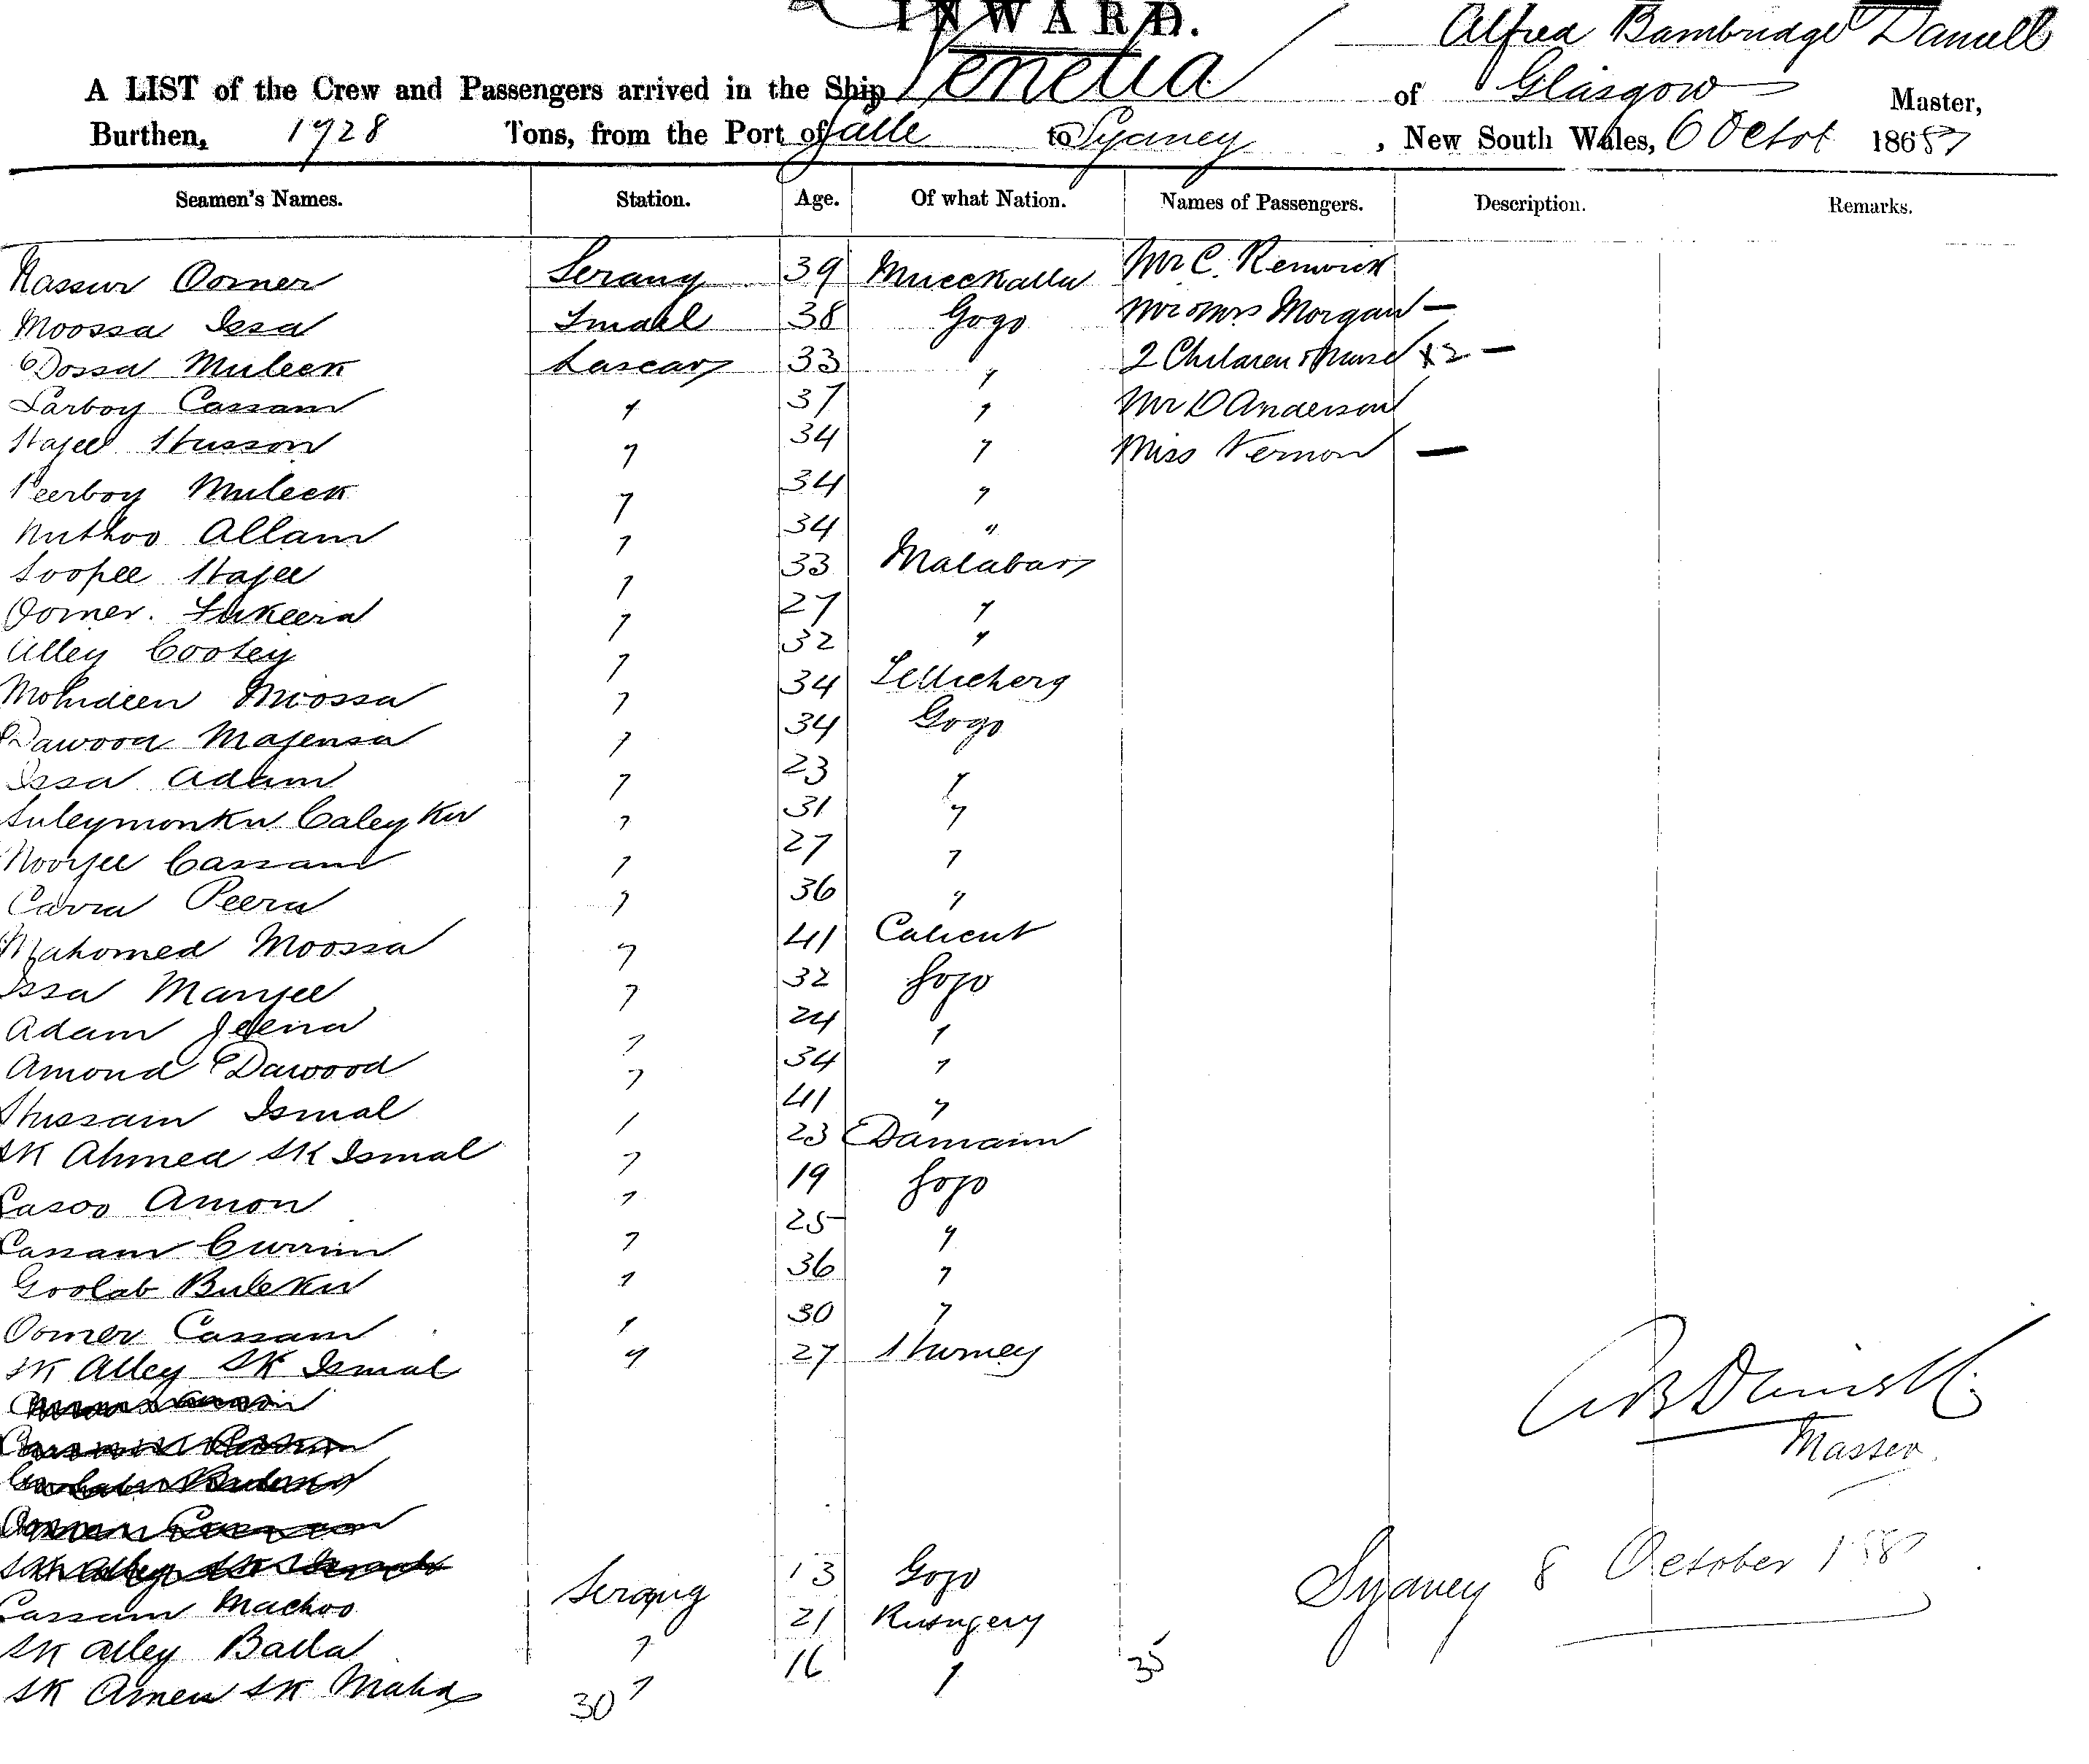 INWARD.
Alfred Bambridge Daniell
A LIST of the Crew and Passengers arrived in the Ship Venetia of Glasgow Master,
Burthen, 1928 Tons, from the Port of Galle to Sydney, New South Wales, 6 Octor 1868
Seamen's Names. Station. Age. Of what Nation. Names of Passengers. Description. Remarks.
Kassur Oomer Serang 39 Mr C. Renwick
Moossa Issa 38 Gogo Mr & Mrs Morgan —
Dossa Muleek Lascar 33 " 2 Children & Nurse x2 —
Cassam " 37 " Mr D Anderson
Hajee Husson " 34 " Miss Vernon —
Peerboy Muleek " 34 "
Nuthoo Allam " 34 "
Soopee Hajee " 33 Malabar
Oomer. Fukeera " 27 "
Alley Cootey " 32 "
Mohideen Moossa " 34 Tellicherg
Dawood Majensa " 34 Gogo
Issa Adam " 23 "
Suleymonku Caley Ku " 31 "
Noorjee Cassam " 27 "
Peera " 36 "
Mahomed Moossa " 41 Calicut
Issa Manjee " 32 Gogo
Adam Jeena " 24 "
Amond Dawood " 34 "
Hussam Ismal " 41 "
SK Ahmed SK Ismal " 23 Damaun
Amon " 19 Gogo
Cassam Currim " 25 "
Goolab Buleku " 36 "
Oomer Cassam " 30 "
SK Alley SK Ismal " 27
A B Daniell
Master
Cassam Machoo Serang 13 Gogo
SK Alley Balla " 21
SK Amen SK " 16 "
30
35
Sydney 8 October 188